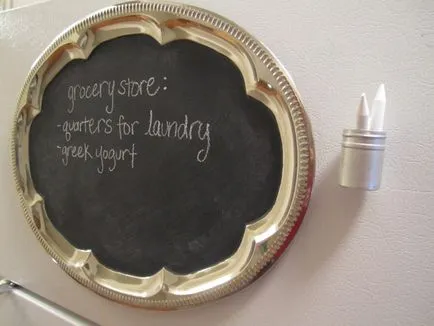 grocery store:
-quarters for laundry
-greek yogurt